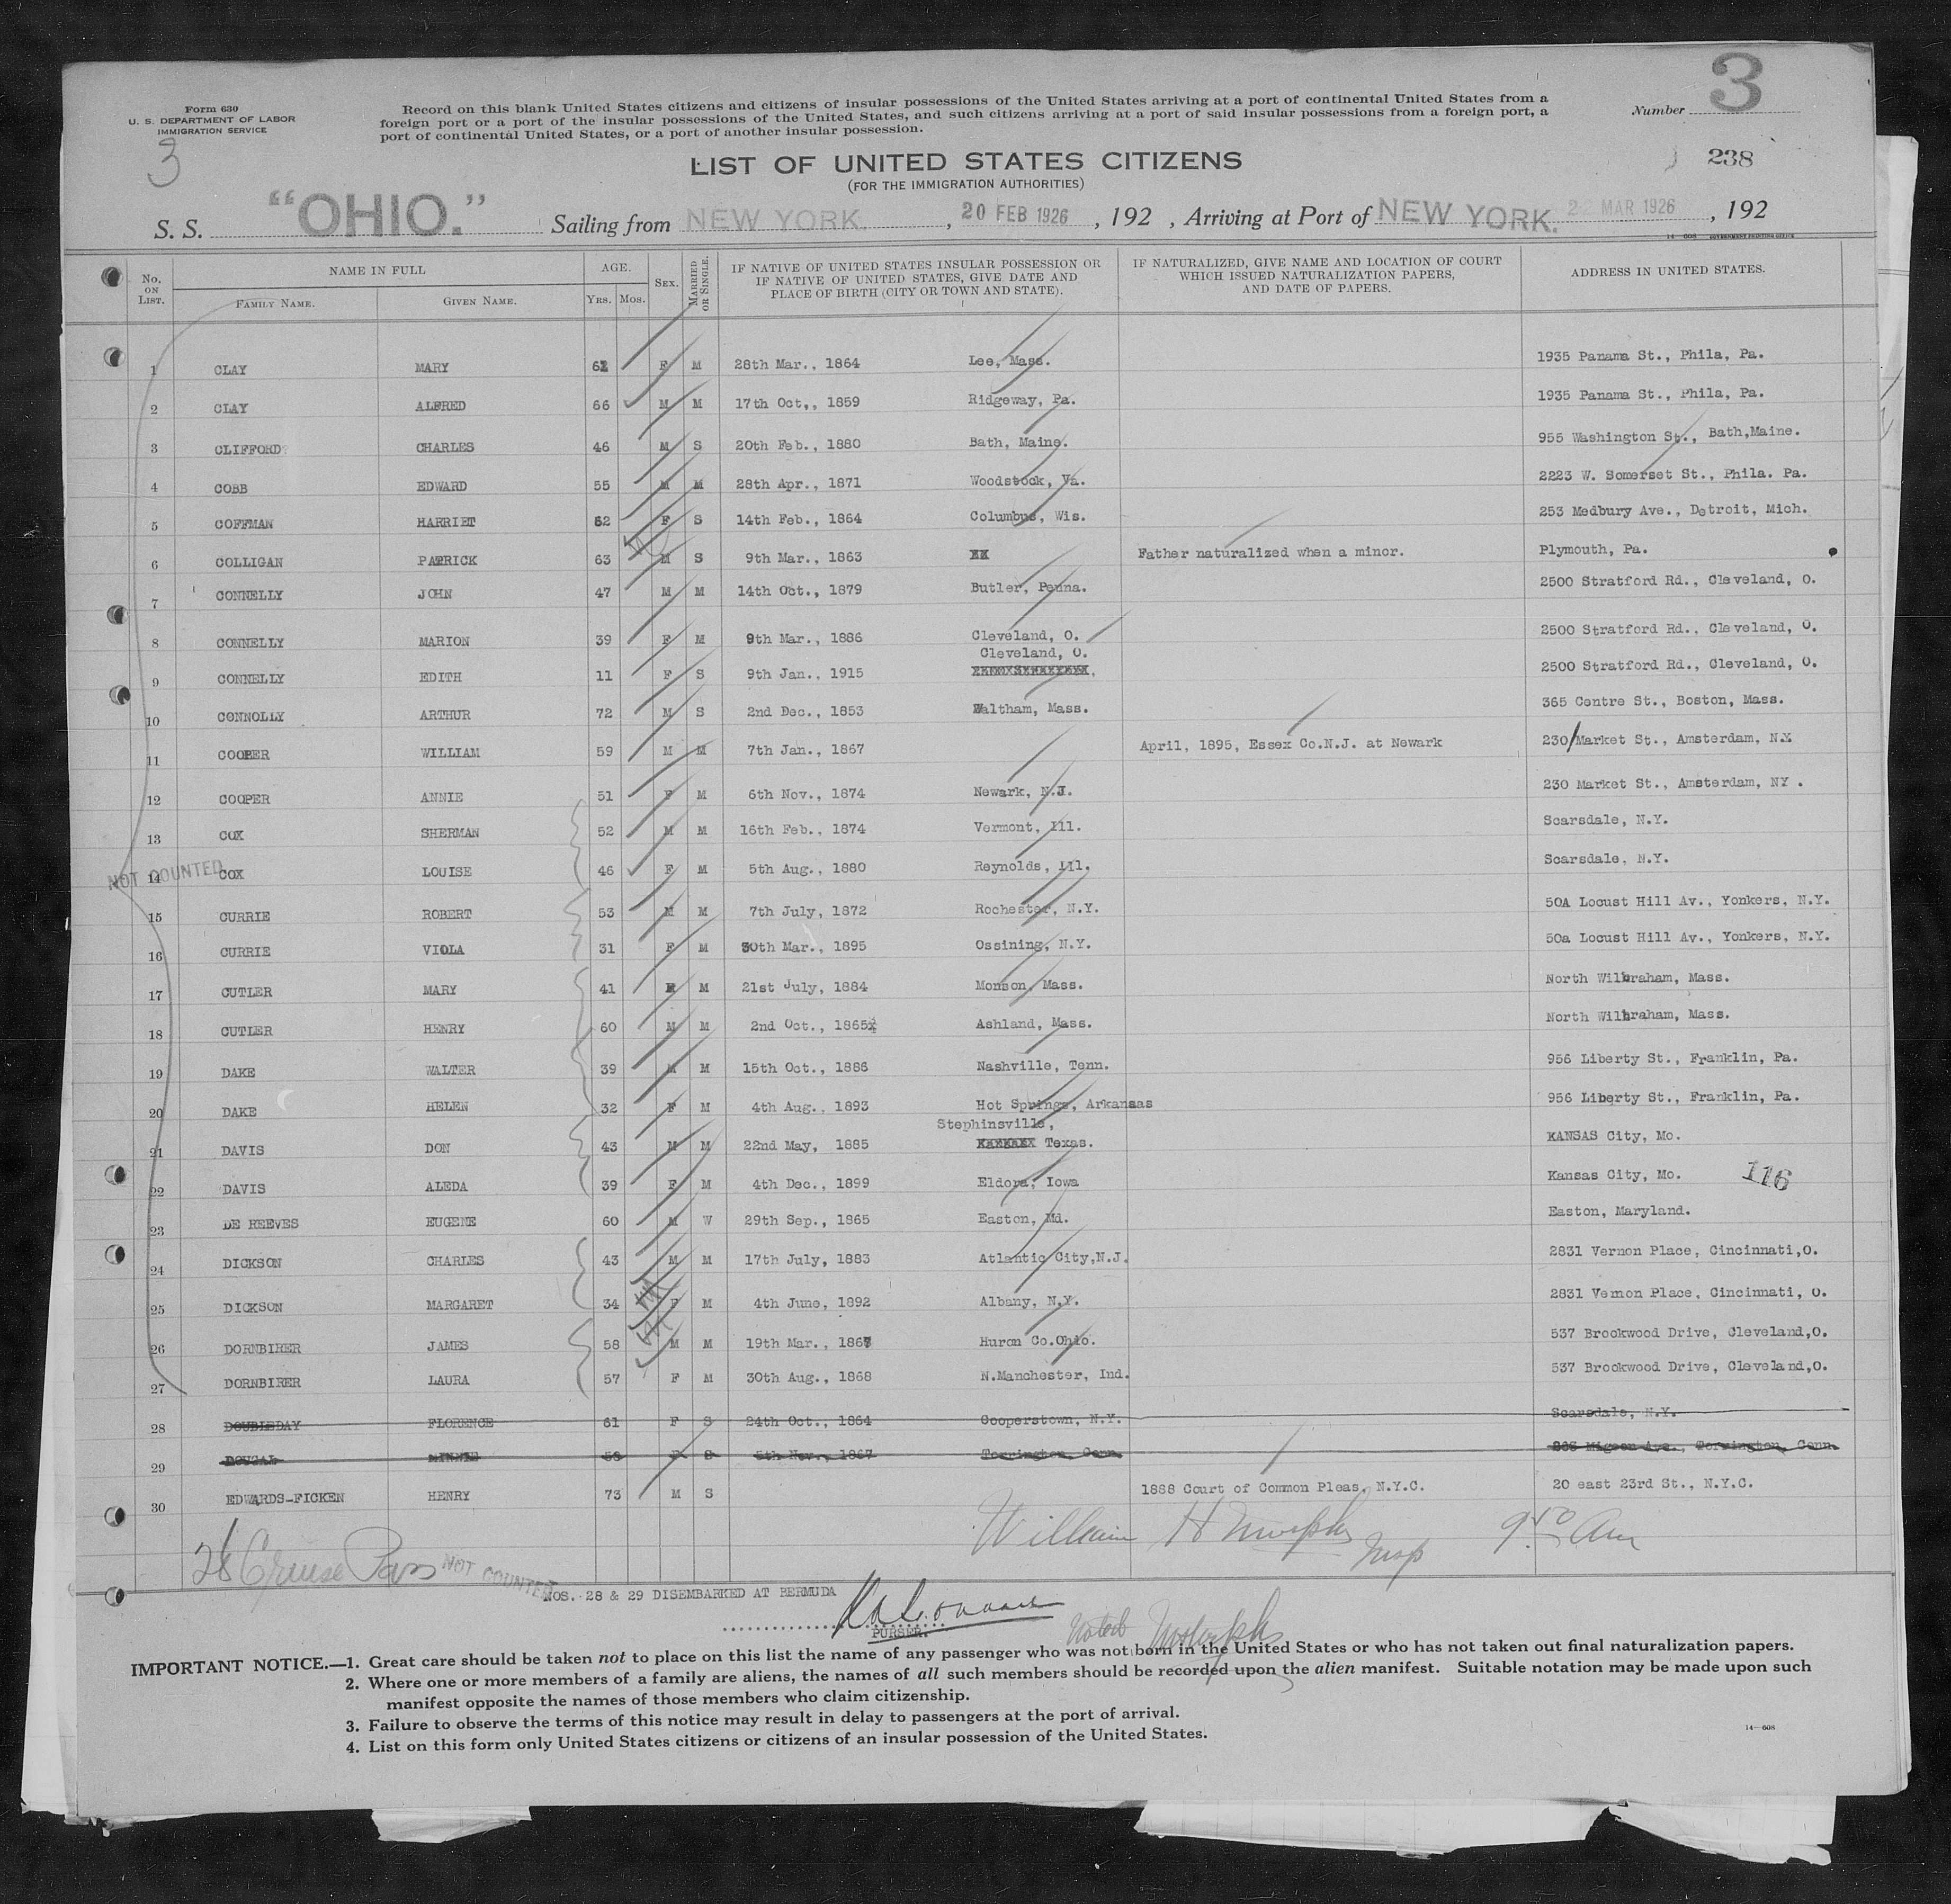 Form 630
U. S. DEPARTMENT OF LABOR
IMMIGRATION SERVICE
3
Record on this blank United States citizens and citizens of insular possessions of the United States arriving at a port of continental United States from a
foreign port or a port of the insular possessions of the United States, and such citizens arriving at a port of said insular possessions from a foreign port, a
port of continental United States, or a port of another insular possession.
Number 3
LIST OF UNITED STATES CITIZENS
(FOR THE IMMIGRATION AUTHORITIES)
238
S. S. "OHIO." Sailing from NEW YORK. , 20 FEB 1926 , 192 , Arriving at Port of NEW YORK. MAR 1926 , 192
14—608 GOVERNMENT PRINTING OFFICE
No. ON LIST. NAME IN FULL AGE. SEX. MARRIED OR SINGLE. IF NATIVE OF UNITED STATES INSULAR POSSESSION OR IF NATIVE OF UNITED STATES, GIVE DATE AND PLACE OF BIRTH (CITY OR TOWN AND STATE). IF NATURALIZED, GIVE NAME AND LOCATION OF COURT WHICH ISSUED NATURALIZATION PAPERS, AND DATE OF PAPERS. ADDRESS IN UNITED STATES.
FAMILY NAME. GIVEN NAME. YRS. MOS.
1 CLAY MARY 62 F M 28th Mar., 1864 Lee, Mass. 1935 Panama St., Phila, Pa.
2 CLAY ALFRED 66 M M 17th Oct,, 1859 Ridgeway, Pa. 1935 Panama St., Phila, Pa.
3 CLIFFORD CHARLES 46 M S 20th Feb., 1880 Bath, Maine. 955 Washington St., Bath,Maine.
4 COBB EDWARD 55 M M 28th Apr., 1871 Woodstock, Va. 2223 W. Somerset St., Phila. Pa.
5 COFFMAN HARRIET 62 F S 14th Feb., 1864 Columbus, Wis. 253 Medbury Ave., Detroit, Mich.
6 COLLIGAN PATRICK 63 M S 9th Mar., 1863 XX Father naturalized when a minor. Plymouth, Pa.
7 CONNELLY JOHN 47 M M 14th Oct., 1879 Butler, Penna. 2500 Stratford Rd., Cleveland, O.
8 CONNELLY MARION 39 F M 9th Mar., 1886 Cleveland, O. 2500 Stratford Rd., Cleveland, O.
Cleveland, O.
9 CONNELLY EDITH 11 F S 9th Jan., 1915 2500 Stratford Rd., Cleveland, O.
10 CONNOLLY ARTHUR 72 M S 2nd Dec., 1853 Waltham, Mass. 365 Centre St., Boston, Mass.
11 COOPER WILLIAM 59 M M 7th Jan., 1867 April, 1895, Essex Co.N.J. at Newark 230 Market St., Amsterdam, N.Y
12 COOPER ANNIE 51 F M 6th Nov., 1874 Newark, N.J. 230 Market St., Amsterdam, NY .
13 COX SHERMAN 52 M M 16th Feb., 1874 Vermont, Ill. Scarsdale, N.Y.
NOT COUNTED
14 COX LOUISE 46 F M 5th Aug., 1880 Reynolds, Ill. Scarsdale, N.Y.
15 CURRIE ROBERT 53 M M 7th July, 1872 Rochester, N.Y. 50A Locust Hill Av., Yonkers, N.Y.
16 CURRIE VIOLA 31 F M 30th Mar., 1895 Ossining, N.Y. 50a Locust Hill Av., Yonkers, N.Y.
17 CUTLER MARY 41 F M 21st July, 1884 Monson, Mass. North Wilbraham, Mass.
18 CUTLER HENRY 60 M M 2nd Oct., 1865 Ashland, Mass. North Wilbraham, Mass.
19 DAKE WALTER 39 M M 15th Oct., 1886 Nashville, Tenn. 956 Liberty St., Franklin, Pa.
20 DAKE HELEN 32 F M 4th Aug., 1893 Hot Springs, Arkansas 956 Liberty St., Franklin, Pa.
Stephinsville,
21 DAVIS DON 43 M M 22nd May, 1885 Texas. KANSAS City, Mo.
22 DAVIS ALEDA 39 F M 4th Dec., 1899 Eldora, Iowa Kansas City, Mo. 116
23 DE REEVES EUGENE 60 M W 29th Sep., 1865 Easton, Md. Easton, Maryland.
24 DICKSON CHARLES 43 M M 17th July, 1883 Atlantic City,N.J. 2831 Vernon Place, Cincinnati,O.
25 DICKSON MARGARET 34 F M 4th June, 1892 Albany, N.Y. 2831 Vernon Place, Cincinnati, O.
26 DORNBIRER JAMES 58 M M 19th Mar., 1867 Huron Co.Ohio. 537 Brookwood Drive, Cleveland,O.
27 DORNBIRER LAURA 57 F M 30th Aug., 1868 N.Manchester, Ind. 537 Brookwood Drive, Cleveland,O.
28 DOUBLEDAY FLORENCE 61 F S 24th Oct., 1864 Cooperstown, N.Y. Scarsdale, N.Y.
29 DOUGAL MINNIE 58 F S 5th Nov., 1867 Torrington, Conn. Migeon Ave., Torrington, Conn.
30 EDWARDS-FICKEN HENRY 73 M S 1888 Court of Common Pleas, N.Y.C. 20 east 23rd St., N.Y.C.
William H Murphy Insp 9 40 Am
28 Cruise Pass NOT COUNTED
NOS. 28 & 29 DISEMBARKED AT BERMUDA
PURSER.
Noted
IMPORTANT NOTICE.—1. Great care should be taken not to place on this list the name of any passenger who was not born in the United States or who has not taken out final naturalization papers.
2. Where one or more members of a family are aliens, the names of all such members should be recorded upon the alien manifest. Suitable notation may be made upon such
manifest opposite the names of those members who claim citizenship.
3. Failure to observe the terms of this notice may result in delay to passengers at the port of arrival.
4. List on this form only United States citizens or citizens of an insular possession of the United States.
14—608